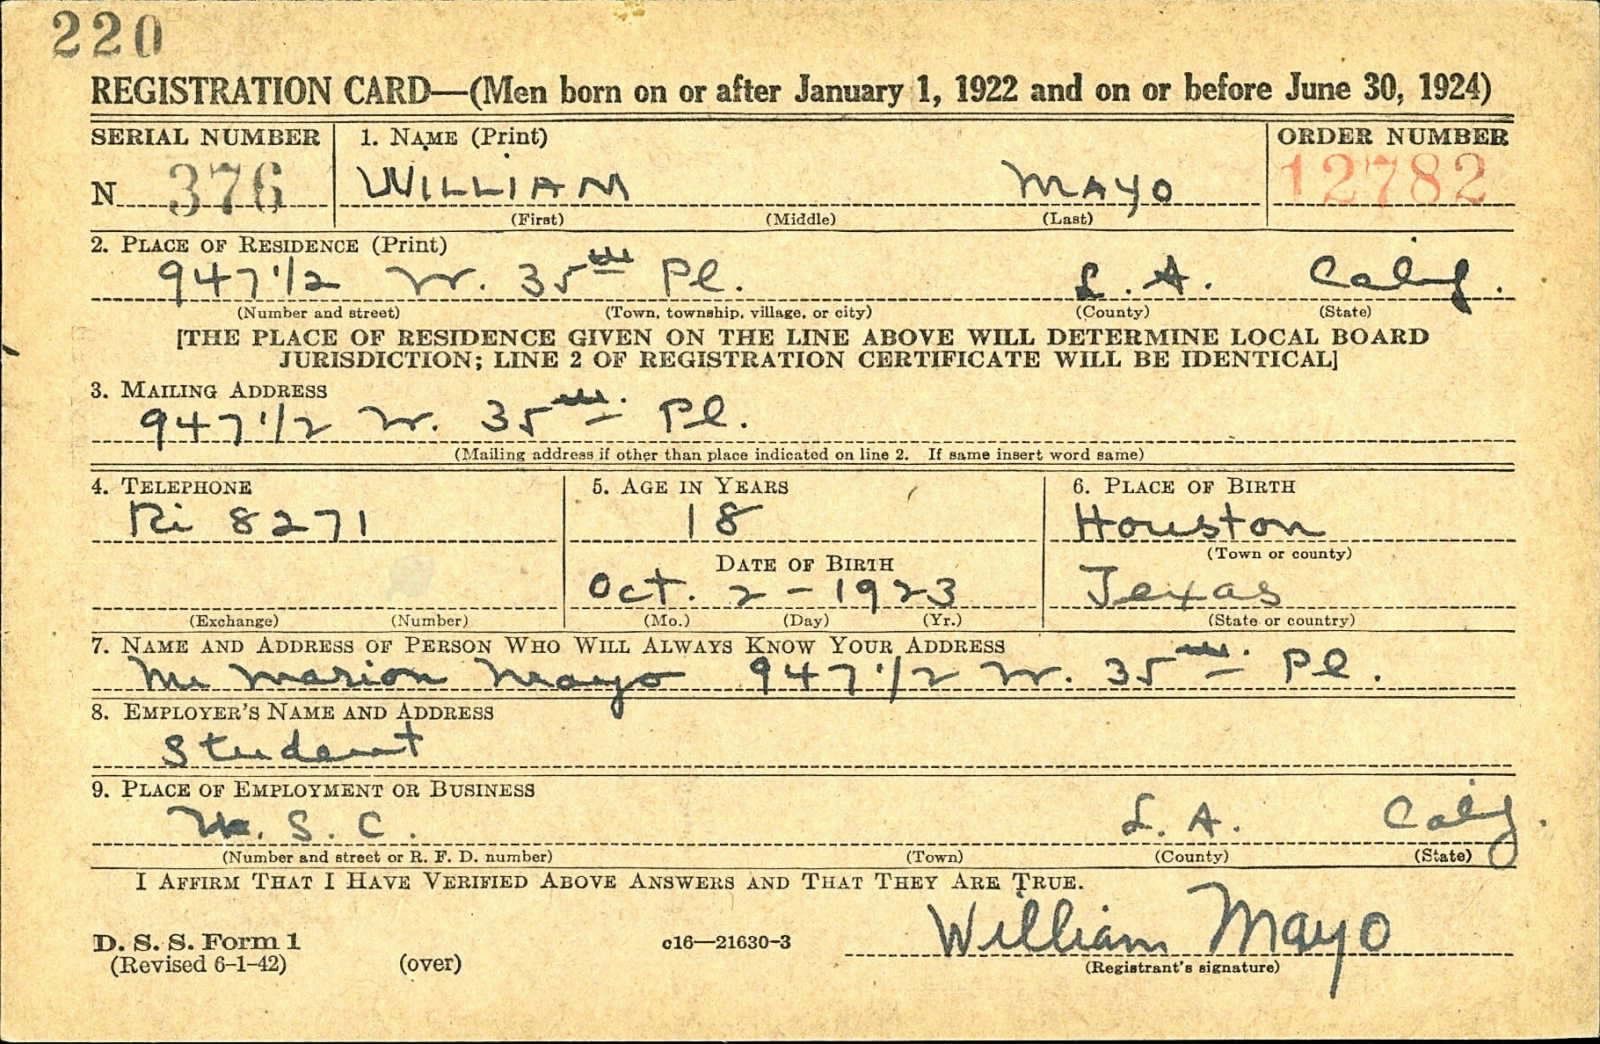 220
REGISTRATION CARD—(Men born on or after January 1, 1922 and on or before June 30, 1924)
SERIAL NUMBER 1. NAME (Print) ORDER NUMBER
N 376 WILLIAM MAYO 12782
(First) (Middle) (Last)
2. PLACE OF RESIDENCE (Print)
947 1/2 W. 35th Pl. L. A. Calif.
(Number and street) (Town, township, village, or city) (County) (State)
[THE PLACE OF RESIDENCE GIVEN ON THE LINE ABOVE WILL DETERMINE LOCAL BOARD
JURISDICTION; LINE 2 OF REGISTRATION CERTIFICATE WILL BE IDENTICAL]
3. MAILING ADDRESS
947 1/2 W. 35th Pl.
(Mailing address if other than place indicated on line 2. If same insert word same)
4. TELEPHONE 5. AGE IN YEARS 6. PLACE OF BIRTH
Ri 8271 18 Houston
(Town or county)
DATE OF BIRTH
Oct. 2 - 1923 Texas
(Exchange) (Number) (Mo.) (Day) (Yr.) (State or country)
7. NAME AND ADDRESS OF PERSON WHO WILL ALWAYS KNOW YOUR ADDRESS
Marion Mayo 947 1/2 W. 35th Pl.
8. EMPLOYER'S NAME AND ADDRESS
Student
9. PLACE OF EMPLOYMENT OR BUSINESS
U. S. C. L. A. Calif.
(Number and street or R. F. D. number) (Town) (County) (State)
I AFFIRM THAT I HAVE VERIFIED ABOVE ANSWERS AND THAT THEY ARE TRUE.
William Mayo
D. S. S. Form 1 c16—21630-3
(Revised 6-1-42) (over) (Registrant's signature)